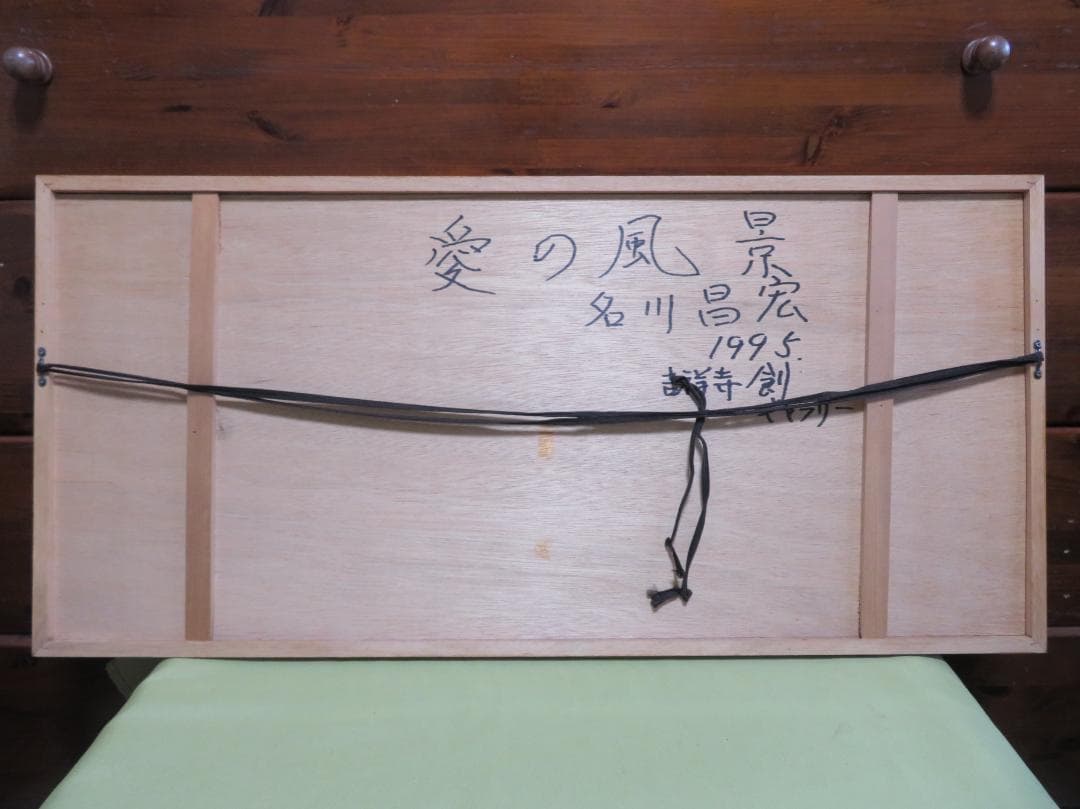 愛の風景
名川昌宏
1995.
吉祥寺 創
ギャラリー